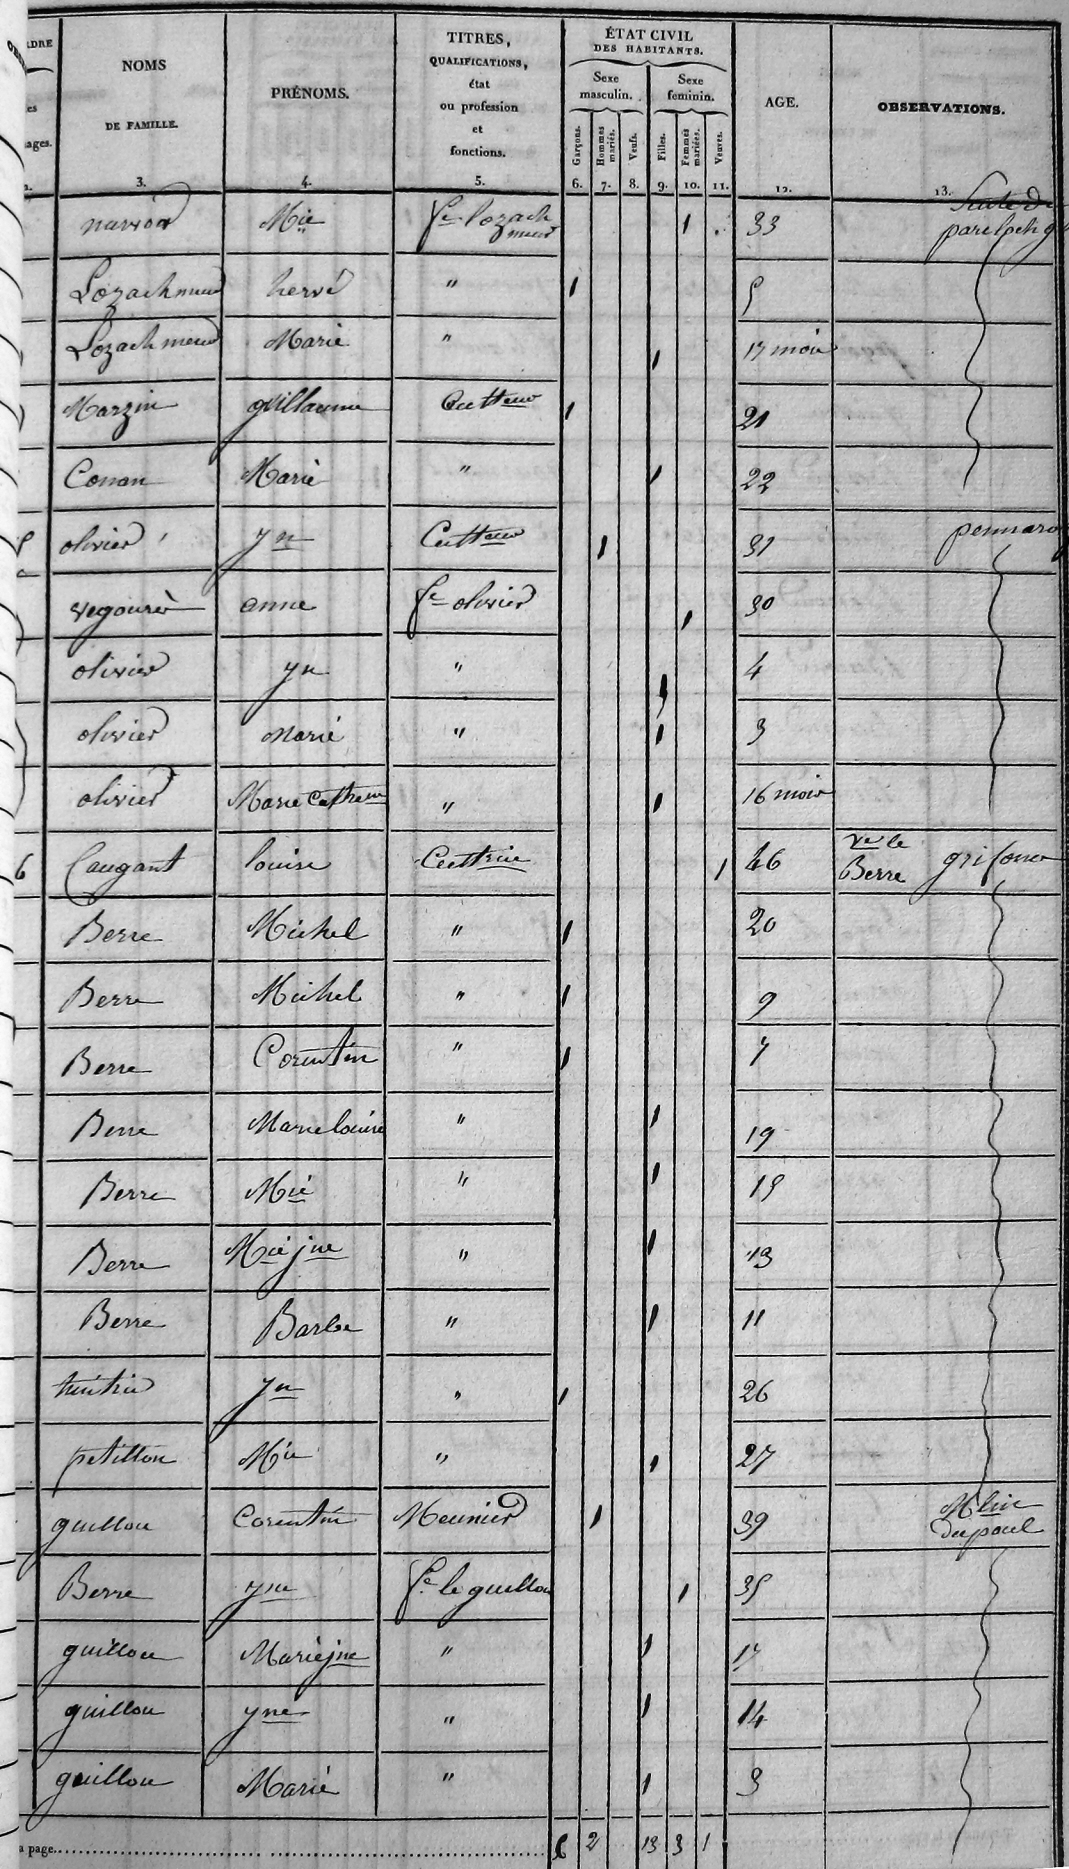 NOMS DE FAMILLE. PRÉNOMS. TITRES, QUALIFICATIONS, état ou profession et fonctions. ÉTAT CIVIL DES HABITANTS. AGE. OBSERVATIONS.
Sexe masculin. Sexe feminin.
Garçons. Hommes mariés. Veufs. Filles. Femmes mariées. Veuves.
3. 4. 5. 6. 7. 8. 9. 10. 11. 12. 13.
Mie fe lozachmeur 1 33 Suite de
Lozachmeur hervé " 1 5
Lozachmeur Marie " 1 17 mois
Marzin guillaume Cultteur 1 21
Conan Marie " 1 22
olivier yn Cultteur 1 31
anne fe olivier 1 30
olivier yn " 1 4
olivier Marie " 1 3
olivier Marie Catherine " 1 16 mois
6 Caugant louise Culttrice 1 46 Ve le Berre
Berre Michel " 1 20
Berre Michel " 1 9
Berre Corentin " 1 7
Berre Marie louise " 1 19
Berre Mie " 1 15
Berre Mie jne " 1 13
Berre Barbe " 1 11
yn " 1 26
petillon Mie " 1 27
guillou Corentin Meunier 1 39 Mlin du poul
Berre yne fe le guillou 1 35
guillou Marie jne " 1 17
guillou yne " 1 14
guillou Marie " 1 3
a page. 6 2 13 3 1